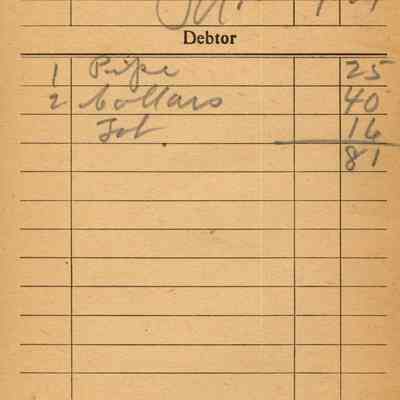 Debtor
1 Pipe 25
2 Collars 40
Tob 16
81